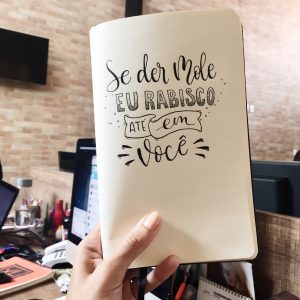 Se der Mole
EU RABISCO
ATÉ em
Você